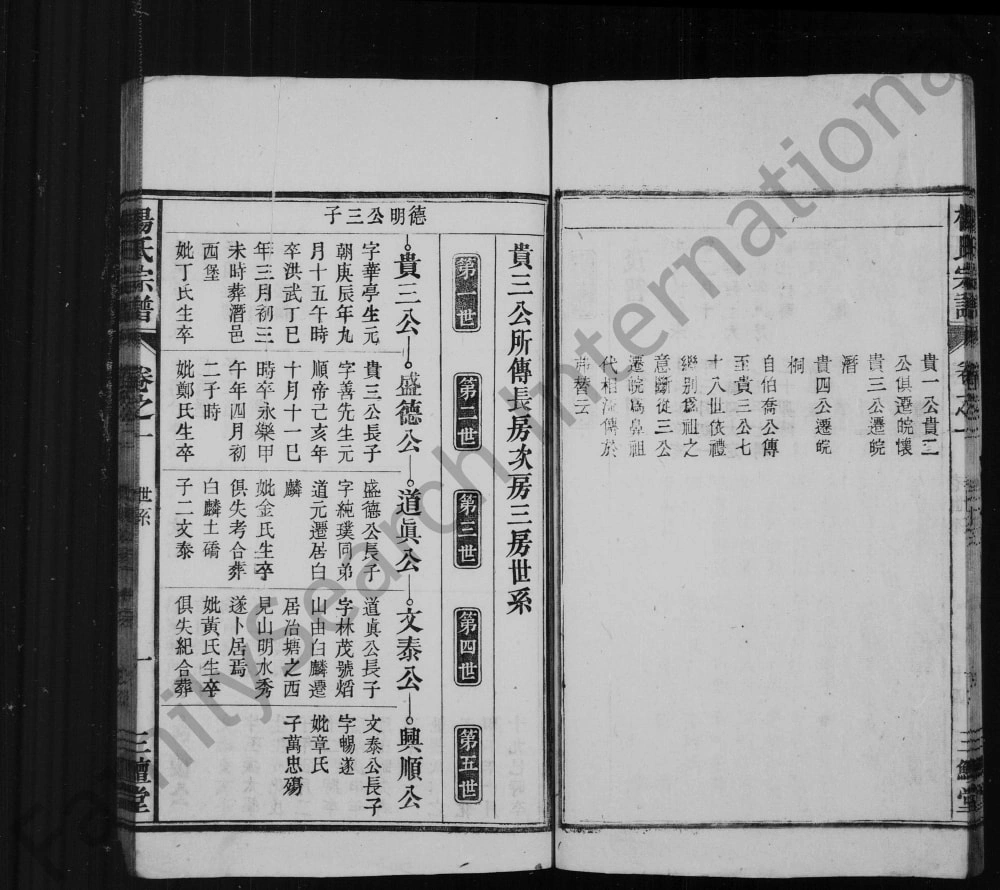 楊氏宗譜
卷之一
三鱣堂
貴一公貴二
公俱遷皖懷
貴三公遷皖
潛
貴四公遷皖
桐
自伯喬公傳
至貴三公七
十八世依禮
繼别爲祖之
意斷從三公
遷皖爲鼻祖
代相流傳於
弗替云
貴三公所傳長房次房三房世系
第一世
第二世
第三世
第四世
第五世
德明公三子
貴三公
盛德公
道眞公
文泰公
興順公
字華亭生元
朝庚辰年九
月十五午時
卒洪武丁巳
年三月初三
未時葬潛邑
西堡
妣丁氏生卒
貴三公長子
字善先生元
順帝己亥年
十月十一巳
時卒永樂甲
午年四月初
二子時
妣鄭氏生卒
盛德公長子
字純璞同弟
道元遷居白
麟
妣金氏生卒
俱失考合葬
白麟土礄
子二文泰
道眞公長子
字林茂號熖
山由白麟遷
居冶塘之西
見山明水秀
遂卜居焉
妣黃氏生卒
俱失紀合葬
文泰公長子
字暢遂
妣章氏
子萬忠殤
楊氏宗譜
卷之一
世系
一
三鱣堂
FamilySearch International